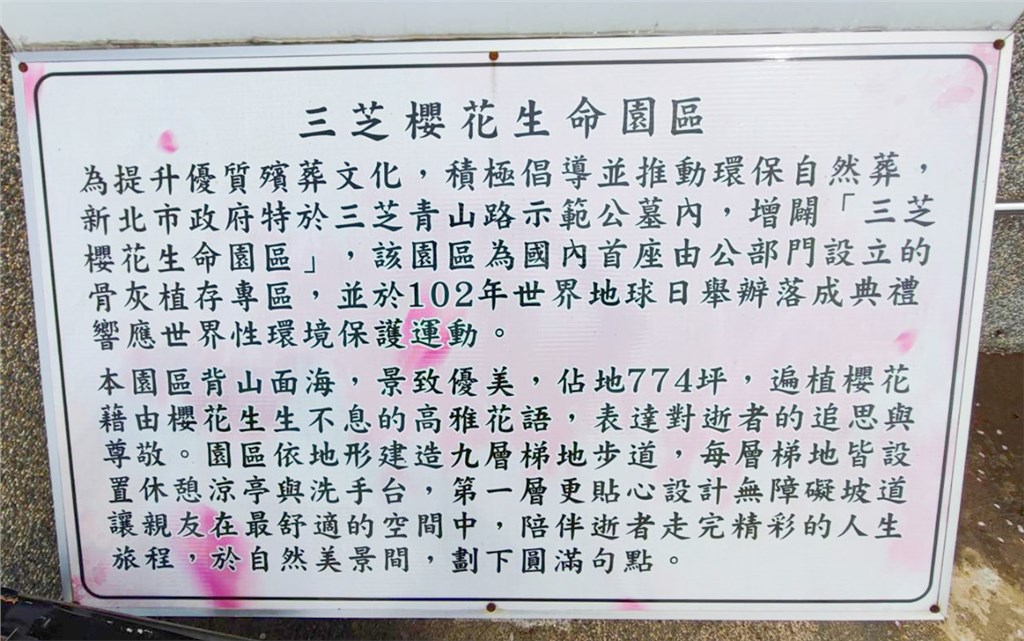 三芝櫻花生命園區
為提升優質殯葬文化，積極倡導並推動環保自然葬，
新北市政府特於三芝青山路示範公墓內，增闢「三芝
櫻花生命園區」，該園區為國內首座由公部門設立的
骨灰植存專區，並於102年世界地球日舉辦落成典禮
響應世界性環境保護運動。
本園區背山面海，景致優美，佔地774坪，遍植櫻花
藉由櫻花生生不息的高雅花語，表達對逝者的追思與
尊敬。園區依地形建造九層梯地步道，每層梯地皆設
置休憩涼亭與洗手台，第一層更貼心設計無障礙坡道
讓親友在最舒適的空間中，陪伴逝者走完精彩的人生
旅程，於自然美景間，劃下圓滿句點。